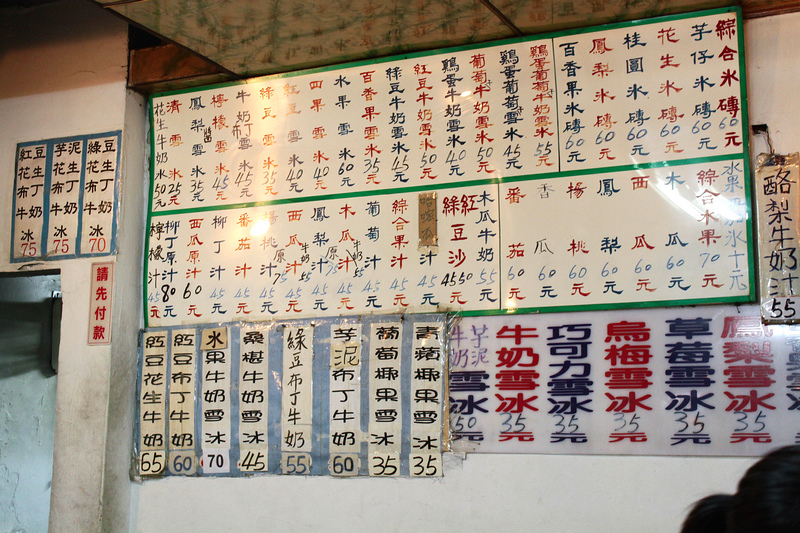 綜合冰磚60元
芋仔冰磚60元
花生冰磚60元
桂圓冰磚60元
鳳梨冰磚60元
百香果冰磚60元
雞蛋葡萄牛奶雪冰55元
雞蛋葡萄雪冰45元
葡萄牛奶雪冰50元
雞蛋牛奶雪冰40元
紅豆牛奶雪冰50元
綠豆牛奶雪冰45元
百香果雪冰35元
水果雪冰60元
四果雪冰40元
紅豆雪冰40元
綠豆雪冰35元
牛奶布丁雪冰45元
檸檬雪冰45元
鳳梨雪冰35元
清雪冰25元
花生牛奶冰50元
綜合水果70元
木瓜60元
西瓜60元
鳳梨60元
楊桃60元
香瓜60元
番茄60元
木瓜牛奶55元
紅豆沙50
綠豆沙45
綜合果汁45元
葡萄汁45元
木瓜汁45元
牛奶55
鳳梨汁45元
原75
西瓜汁45元
牛奶55
楊桃汁45元
原75
番茄汁45元
柳丁汁45元
西瓜原汁60元
柳丁原汁80元
檸檬汁45元
酪梨牛奶汁55
綠豆花生布丁牛奶冰70
芋泥花生布丁牛奶冰75
紅豆花生布丁牛奶冰75
請先付款
紅豆花生牛奶65
紅豆布丁牛奶60
水果牛奶雪冰70
桑椹牛奶雪冰45
綠豆布丁牛奶55
芋泥布丁牛奶60
葡萄椰果雪冰35
青蘋椰果雪冰35
芋泥牛奶雪冰50
牛奶雪冰35元
巧可力雪冰35元
烏梅雪冰35元
草莓雪冰35元
鳳梨雪冰35元